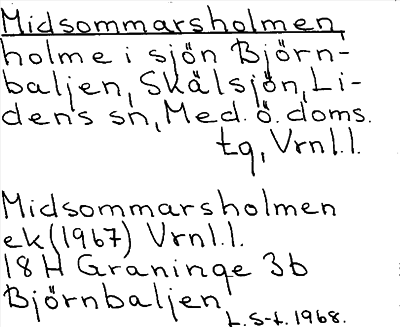 Midsommarsholmen,
holme i sjön Björn-
baljen, Skälsjön, Li-
dens sn, Med. ö. doms.
tg, Vrnl.l.
Midsommarsholmen
ek (1967) Vrnl.l.
18 H Graninge 3b
Björnbaljen
L. S-t. 1968.